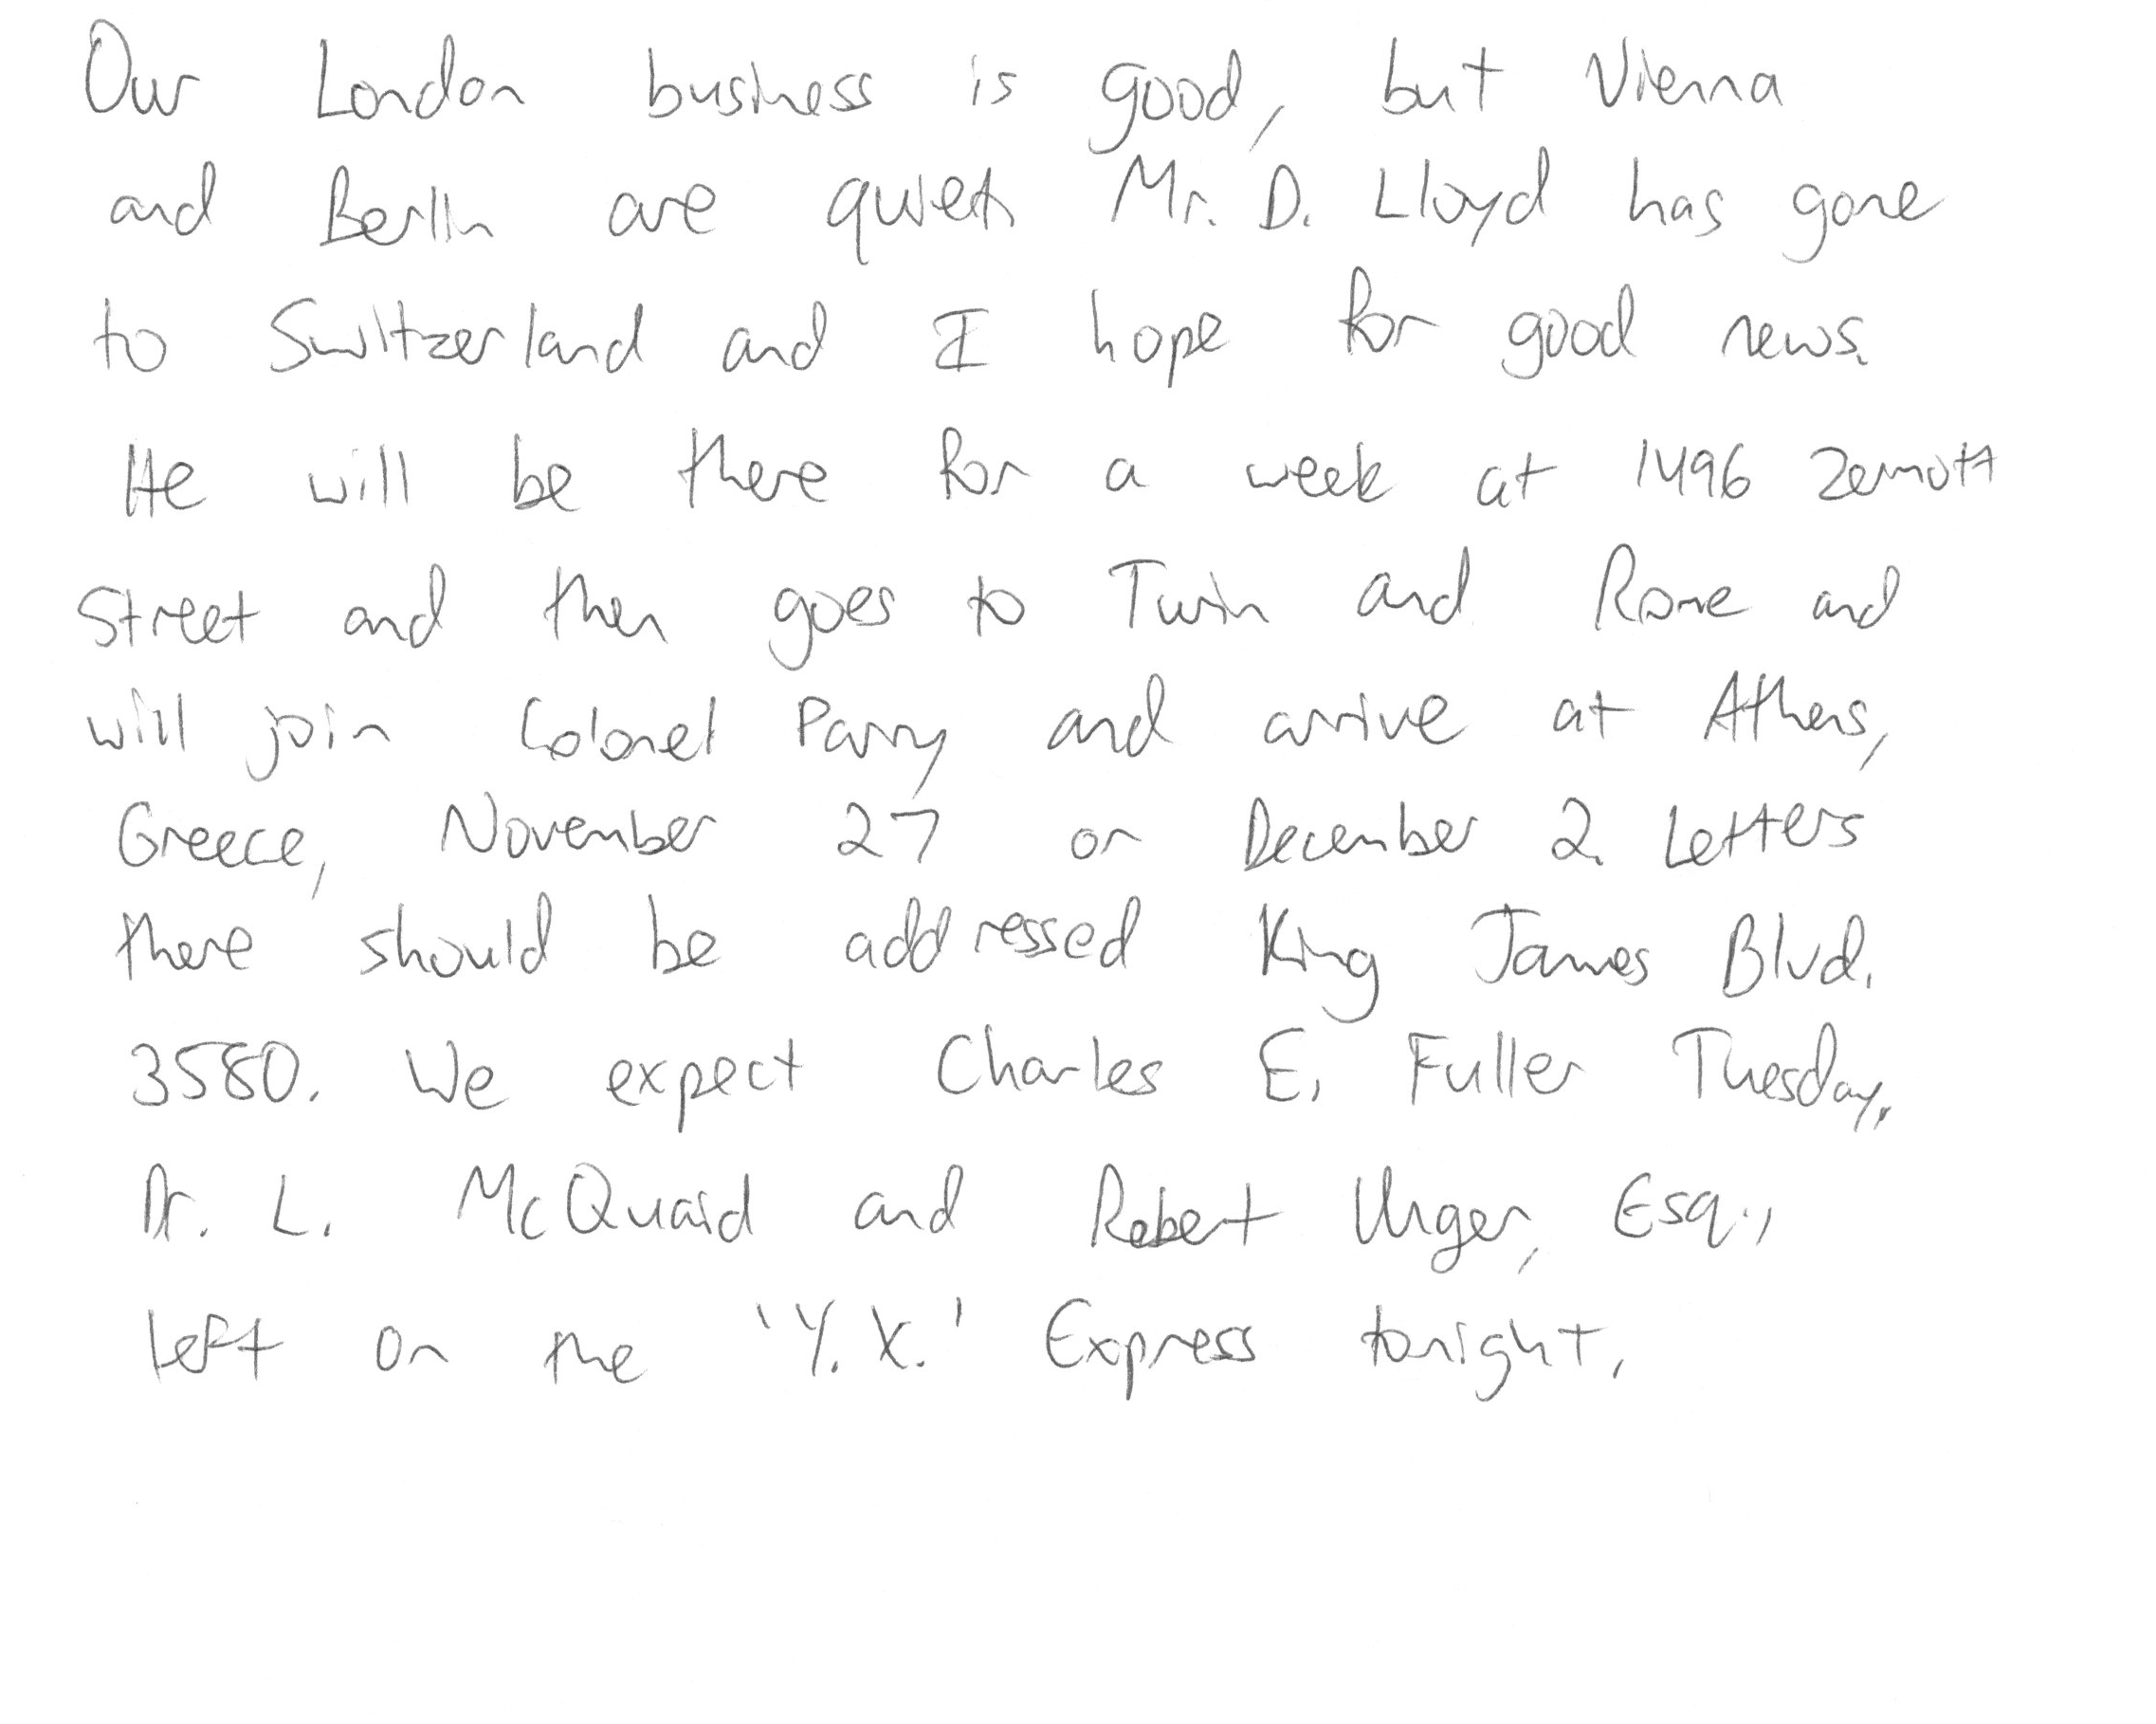 Our London business is good, but Vienna
and Berlin are quiet. Mr. D. Lloyd has gone
to Switzerland and I hope for good news.
He will be there for a week at 1496 Zermott
Street and then goes to Turin and Rome and
will join Colonel Parry and arrive at Athens,
Greece, November 27 or December 2. Letters
there should be addressed King James Blvd.
3580. We expect Charles E. Fuller Tuesday.
Dr. L. McQuaid and Robert Unger, Esq.,
left on the 'Y.X.' Express tonight.